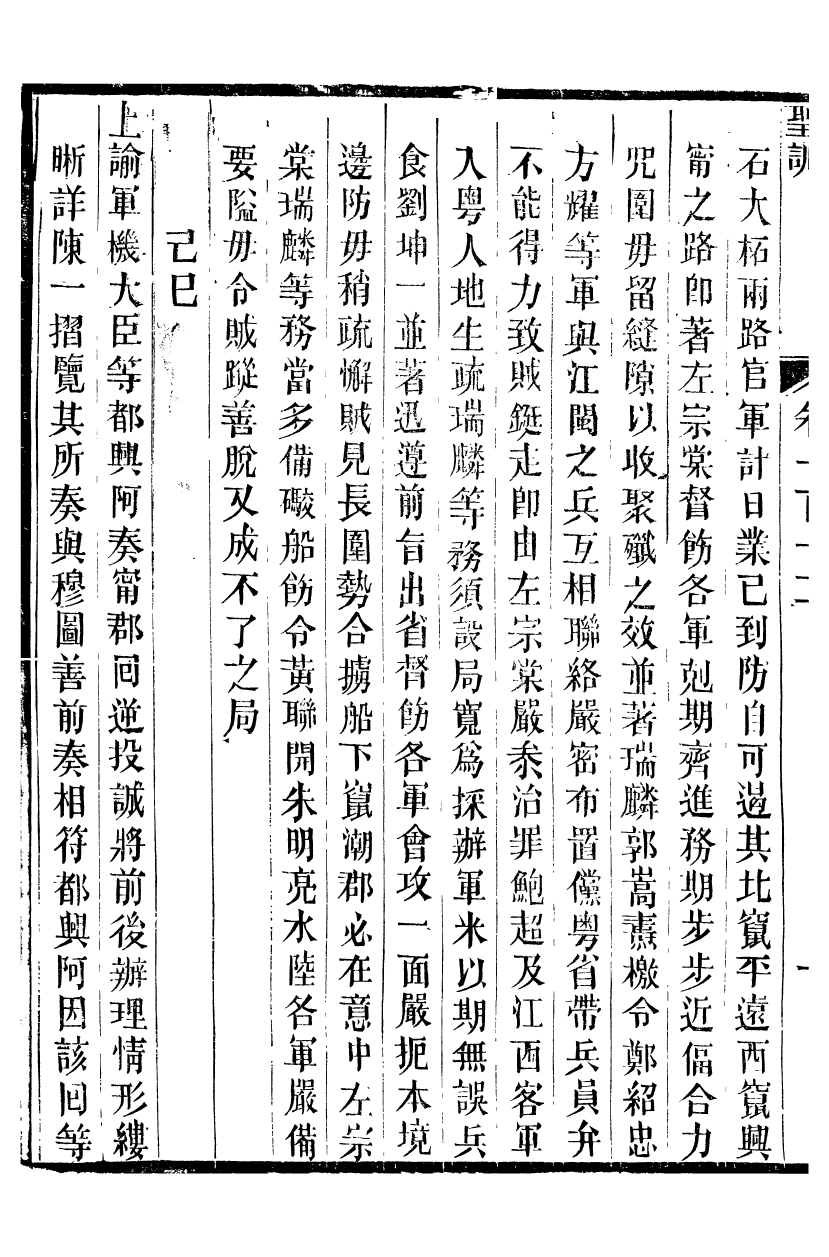 聖訓 卷一百十二 一
石大柘兩路官軍計日業已到防自可遏其北竄平遠西竄興
甯之路卽著左宗棠督飭各軍剋期齊進務期步步近偪合力
兜圍毋留縫隙以收聚殲之效並著瑞麟郭嵩燾檄令鄭紹忠
方耀等軍與江閩之兵互相聯絡嚴密布置儻粵省帶兵員弁
不能得力致賊鋌走卽由左宗棠嚴叅治罪鮑超及江西客軍
入粵人地生疏瑞麟等務須設局寬爲採辦軍米以期無誤兵
食劉坤一並著迅遵前旨出省督飭各軍會攻一面嚴扼本境
邊防毋稍疏懈賊見長圍勢合擄船下竄潮郡必在意中左宗
棠瑞麟等務當多備礮船飭令黃聯開朱明亮水陸各軍嚴備
要隘毋令賊蹤善脫又成不了之局
己巳
上諭軍機大臣等都興阿奏甯郡回逆投誠將前後辦理情形縷
晰詳陳一摺覽其所奏與穆圖善前奏相符都興阿因該回等